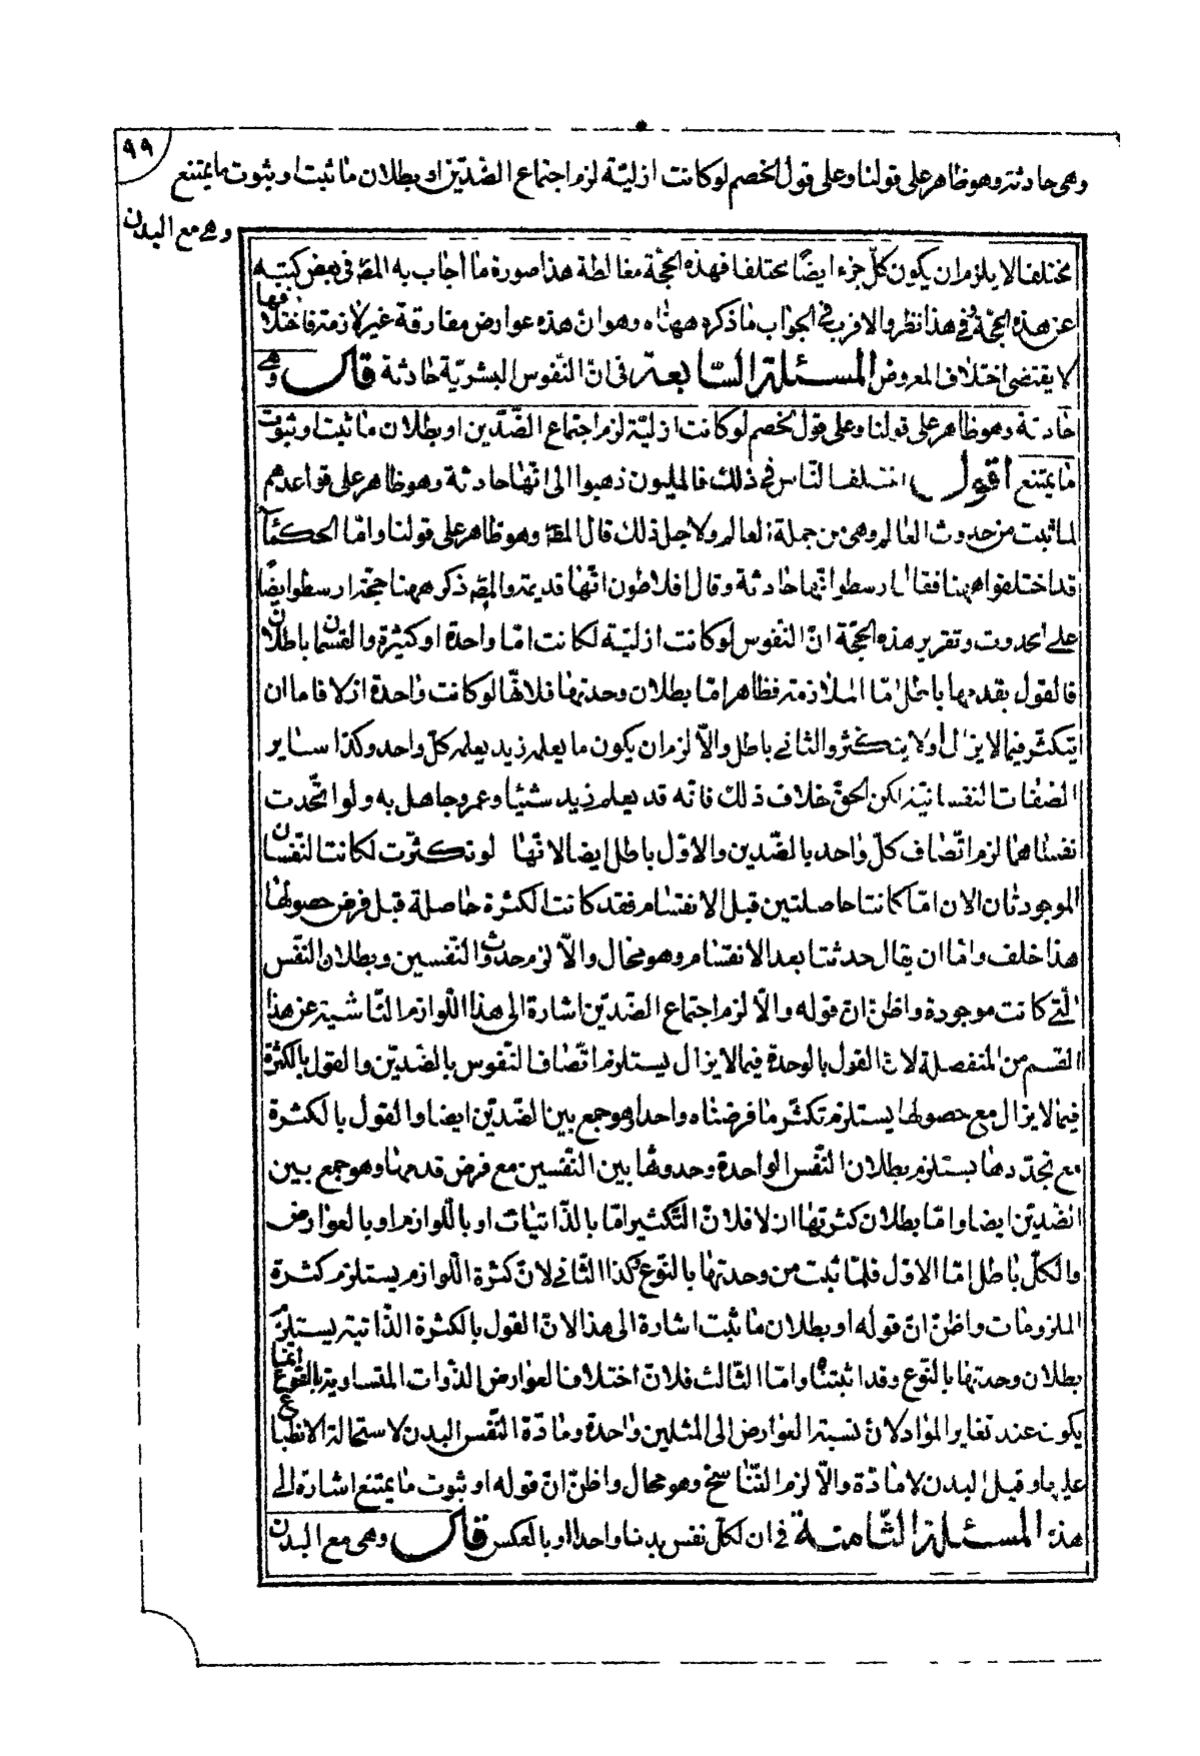 ٩٩
وهى حادثة وهو ظاهر على قولنا وعلى قول الخصم لو كانت ازلية لزم اجتماع الضدين او بطلان ما ثبت او ثبوت ما يمتنع
وهى مع البدن
مختلفا لا يلزم ان يكون كلّ جزء ايضًا مختلفا فهذه الحجّة مغالطة هذا صورة ما اجاب به المصّ فى بعض كتبه
عن هذه الحجّة وفى هذا نظر والاقرب فى الجواب ما ذكره ههنا وهو انّ هذه عوارض مفارقة غير لازمة فاختلافها
لا يقتضى اختلاف المعروض المسئلة السّابعة فى انّ النّفوس البشريّة حادثة قال وهى
حادثة وهو ظاهر على قولنا وعلى قول الخصم لو كانت ازليّة لزم اجتماع الضّدّين او بطلان ما ثبت او ثبوت
ما يمتنع اقول اختلف النّاس فى ذلك فالمليون ذهبوا الى انّها حادثة وهو ظاهر على قواعدهم
لما ثبت من حدوث العالم وهى من جملة العالم ولاجل ذلك قال المصّ وهو ظاهر على قولنا وامّا الحكماء
قد اختلفوا ههنا فقال ارسطو انّها حادثة وقال افلاطون انّها قديمة والمصّ ذكر ههنا حجّة ارسطو ايضًا
على الحدوث وتقرير هذه الحجّة انّ النّفوس لو كانت ازليّة لكانت امّا واحدة او كثيرة والقسمان باطلان
فالقول بقدمها باطل امّا الملازمة فظاهر امّا بطلان وحدتها فلانّها لو كانت واحدة ازلا فاما ان
يتكثّر فيما لا يزال او لا يتكثّر والثانى باطل والّا لزم ان يكون ما يعلمه زيد يعلمه كلّ واحد وكذا ساير
الصّفات النفسانيّة لكن الحقّ خلاف ذلك فانّه قد يعلم زيد شيئا وعمرو جاهل به ولو اتّحدت
نفساهما لزم اتّصاف كلّ واحد بالضّدين والاوّل باطل ايضا لانّها لو تكثّرت لكانت النّفسان
الموجودتان الان امّا كانتا حاصلتين قبل الانقسام فقد كانت الكثرة حاصلة قبل فرض حصولها
هذا خلف وامّا ان يقال حدثتا بعد الانقسام وهو محال والّا لزم حدوث النّفسين وبطلان النّفس
الّتى كانت موجودة واظنّ انّ قوله والّا لزم اجتماع الضّدّين اشارة الى هذا اللّوازم النّاشية عن هذا
القسم من المنفصلة لانّ القول بالوحدة فيما لا يزال يستلزم اتّصاف النّفوس بالضّدّين والقول بالكثرة
فيما لا يزال مع حصولها يستلزم تكثّر ما فرضناه واحدا وهو جمع بين الضّدّين ايضا والقول بالكثرة
مع تجدّدها يستلزم بطلان النّفس الواحدة وحدوثها بين النّفسين مع فرض قدمها وهو جمع بين
الضّدين ايضا وامّا بطلان كثرتها ازلا فلانّ التّكثير امّا بالذّاتيّات او باللّوازم او بالعوارض
والكلّ باطل امّا الاوّل فلمّا ثبت من وحدتها بالنّوع وكذا الثّانى لانّ كثرة اللّوازم يستلزم كثرة
الملزومات واظنّ انّ قوله او بطلان ما ثبت اشارة الى هذا لانّ القول بالكثرة الذّاتية يستلزم
بطلان وحدتها بالنّوع وقد اثبتناه وامّا الثّالث فلانّ اختلاف العوارض الذّوات المتساوية بالنّوع انّما
يكون عند تغاير الموادّ لانّ نسبة العوارض الى المثلين واحدة ومادّة النّفس البدن لاستحالة الانطباع
عليها وقبل البدن لا مادّة والّا لزم التّناسخ وهو محال واظنّ انّ قوله او ثبوت ما يمتنع اشارة الى
هذه المسئلة الثّامنة فى ان لكلّ نفس بدنا واحدا وبالعكس قال وهى مع البدن